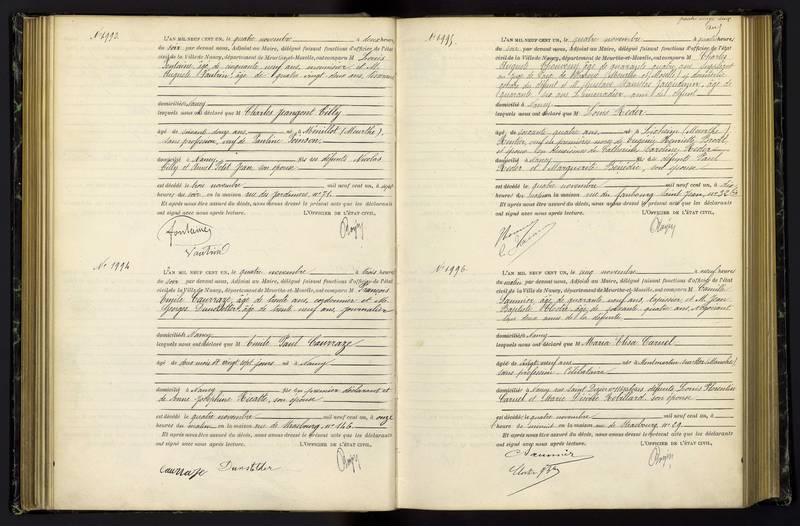 No 1993.
L'AN MIL NEUF CENT UN, le quatre novembre à deux heures
du soir par devant nous, Adjoint au Maire, délégué faisant fonctions d'officier de l'état
civil de la Ville de Nancy, département de Meurthe-et-Moselle, ont comparu M Louis
Fontaine, âgé de cinquante neuf ans, menuisier et M.
Auguste Vautrin, âgé de quatre vingt deux ans,
domiciliés à Nancy
lesquels nous ont déclaré que M Charles Jeangeot Cilly
âgé de soixante douze ans né à Ménillot (Meurthe),
sans profession, veuf de Pauline
domicilié à Nancy fils de défunts Nicolas
Cilly et Anne Petit Jean son épouse
est décédé le trois novembre mil neuf cent un, à sept
heures du soir en la maison rue des Jardiniers, no 71.
Et après nous être assuré du décès, nous avons dressé le présent acte que les déclarants
ont signé avec nous après lecture. L'OFFICIER DE L'ÉTAT CIVIL,
Fontaine
Vautrin
No 1994
L'AN MIL NEUF CENT UN, le quatre novembre à trois heures
du soir par devant nous, Adjoint au Maire, délégué faisant fonctions d'officier de l'état
civil de la Ville de Nancy, département de Meurthe-et-Moselle, ont comparu M François
Emile Caurraze, âgé de trente ans, cordonnier et M.
Georges Dunstetter, âgé de trente neuf ans, journalier
domiciliés à Nancy
lesquels nous ont déclaré que M Emile Paul Caurraze
âgé de deux mois et vingt sept jours né à Nancy
domicilié à Nancy fils du premier déclarant et
de Anne Joséphine son épouse
est décédé le quatre novembre mil neuf cent un, à onze
heures du matin en la maison rue de Strasbourg, no 146
Et après nous être assuré du décès, nous avons dressé le présent acte que les déclarants
ont signé avec nous après lecture. L'OFFICIER DE L'ÉTAT CIVIL,
Caurraze Dunstetter
No 1995.
L'AN MIL NEUF CENT UN, le quatre novembre à quatre heures
du soir par devant nous, Adjoint au Maire, délégué faisant fonctions d'officier de l'état
civil de la Ville de Nancy, département de Meurthe-et-Moselle, ont comparu M Charles
Auguste âgé de quarante quatre ans
(Meurthe et Moselle) y domicilié
gendre du défunt et M. Gustave Jacquemin, âgé de
quarante six ans ami du défunt
domicilié à Nancy
lesquels nous ont déclaré que M Louis Reder
âgé de soixante quatre ans né à Lixheim (Meurthe),
Rentier, veuf en premières noces de Eugénie Henriette
et époux en secondes de Catherine Caroline Reder
domicilié à Nancy fils de défunts Paul
Reder et Marguerite Bénédic, son épouse
est décédé le quatre novembre mil neuf cent un, à dix
heures du matin en la maison rue du faubourg Saint Jean, no
Et après nous être assuré du décès, nous avons dressé le présent acte que les déclarants
ont signé avec nous après lecture. L'OFFICIER DE L'ÉTAT CIVIL,
No 1996.
L'AN MIL NEUF CENT UN, le cinq novembre à neuf heures
du matin par devant nous, Adjoint au Maire, délégué faisant fonctions d'officier de l'état
civil de la Ville de Nancy, département de Meurthe-et-Moselle, ont comparu M Camille
Saunier, âgé de quarante neuf ans, tapissier et M. Jean
Baptiste âgé de soixante quatre ans, négociant
tous deux amis de la défunte
domiciliés à Nancy
lesquels nous ont déclaré que M Maria Elisa Caruel
âgée de vingt neuf ans née à Montmartin-sur-Mer (Manche)
sans profession célibataire
domiciliée à Nancy, rue Saint Dizier fille de défunts Louis Florentin
Caruel et Marie Robillard, son épouse
est décédée le quatre novembre mil neuf cent un, à
heures de minuit en la maison rue de Strasbourg no 29
Et après nous être assuré du décès, nous avons dressé le présent acte que les déclarants
ont signé avec nous après lecture. L'OFFICIER DE L'ÉTAT CIVIL,
C. Saunier